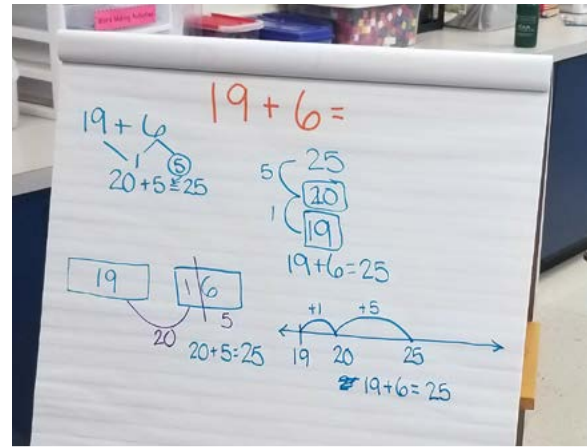 19 + 6 =
19 + 6
1 5
20 + 5 = 25
25
5
20
1
19
19 + 6 = 25
19
1 6
20
5
20 + 5 = 25
+1 +5
19 20 25
19 + 6 = 25